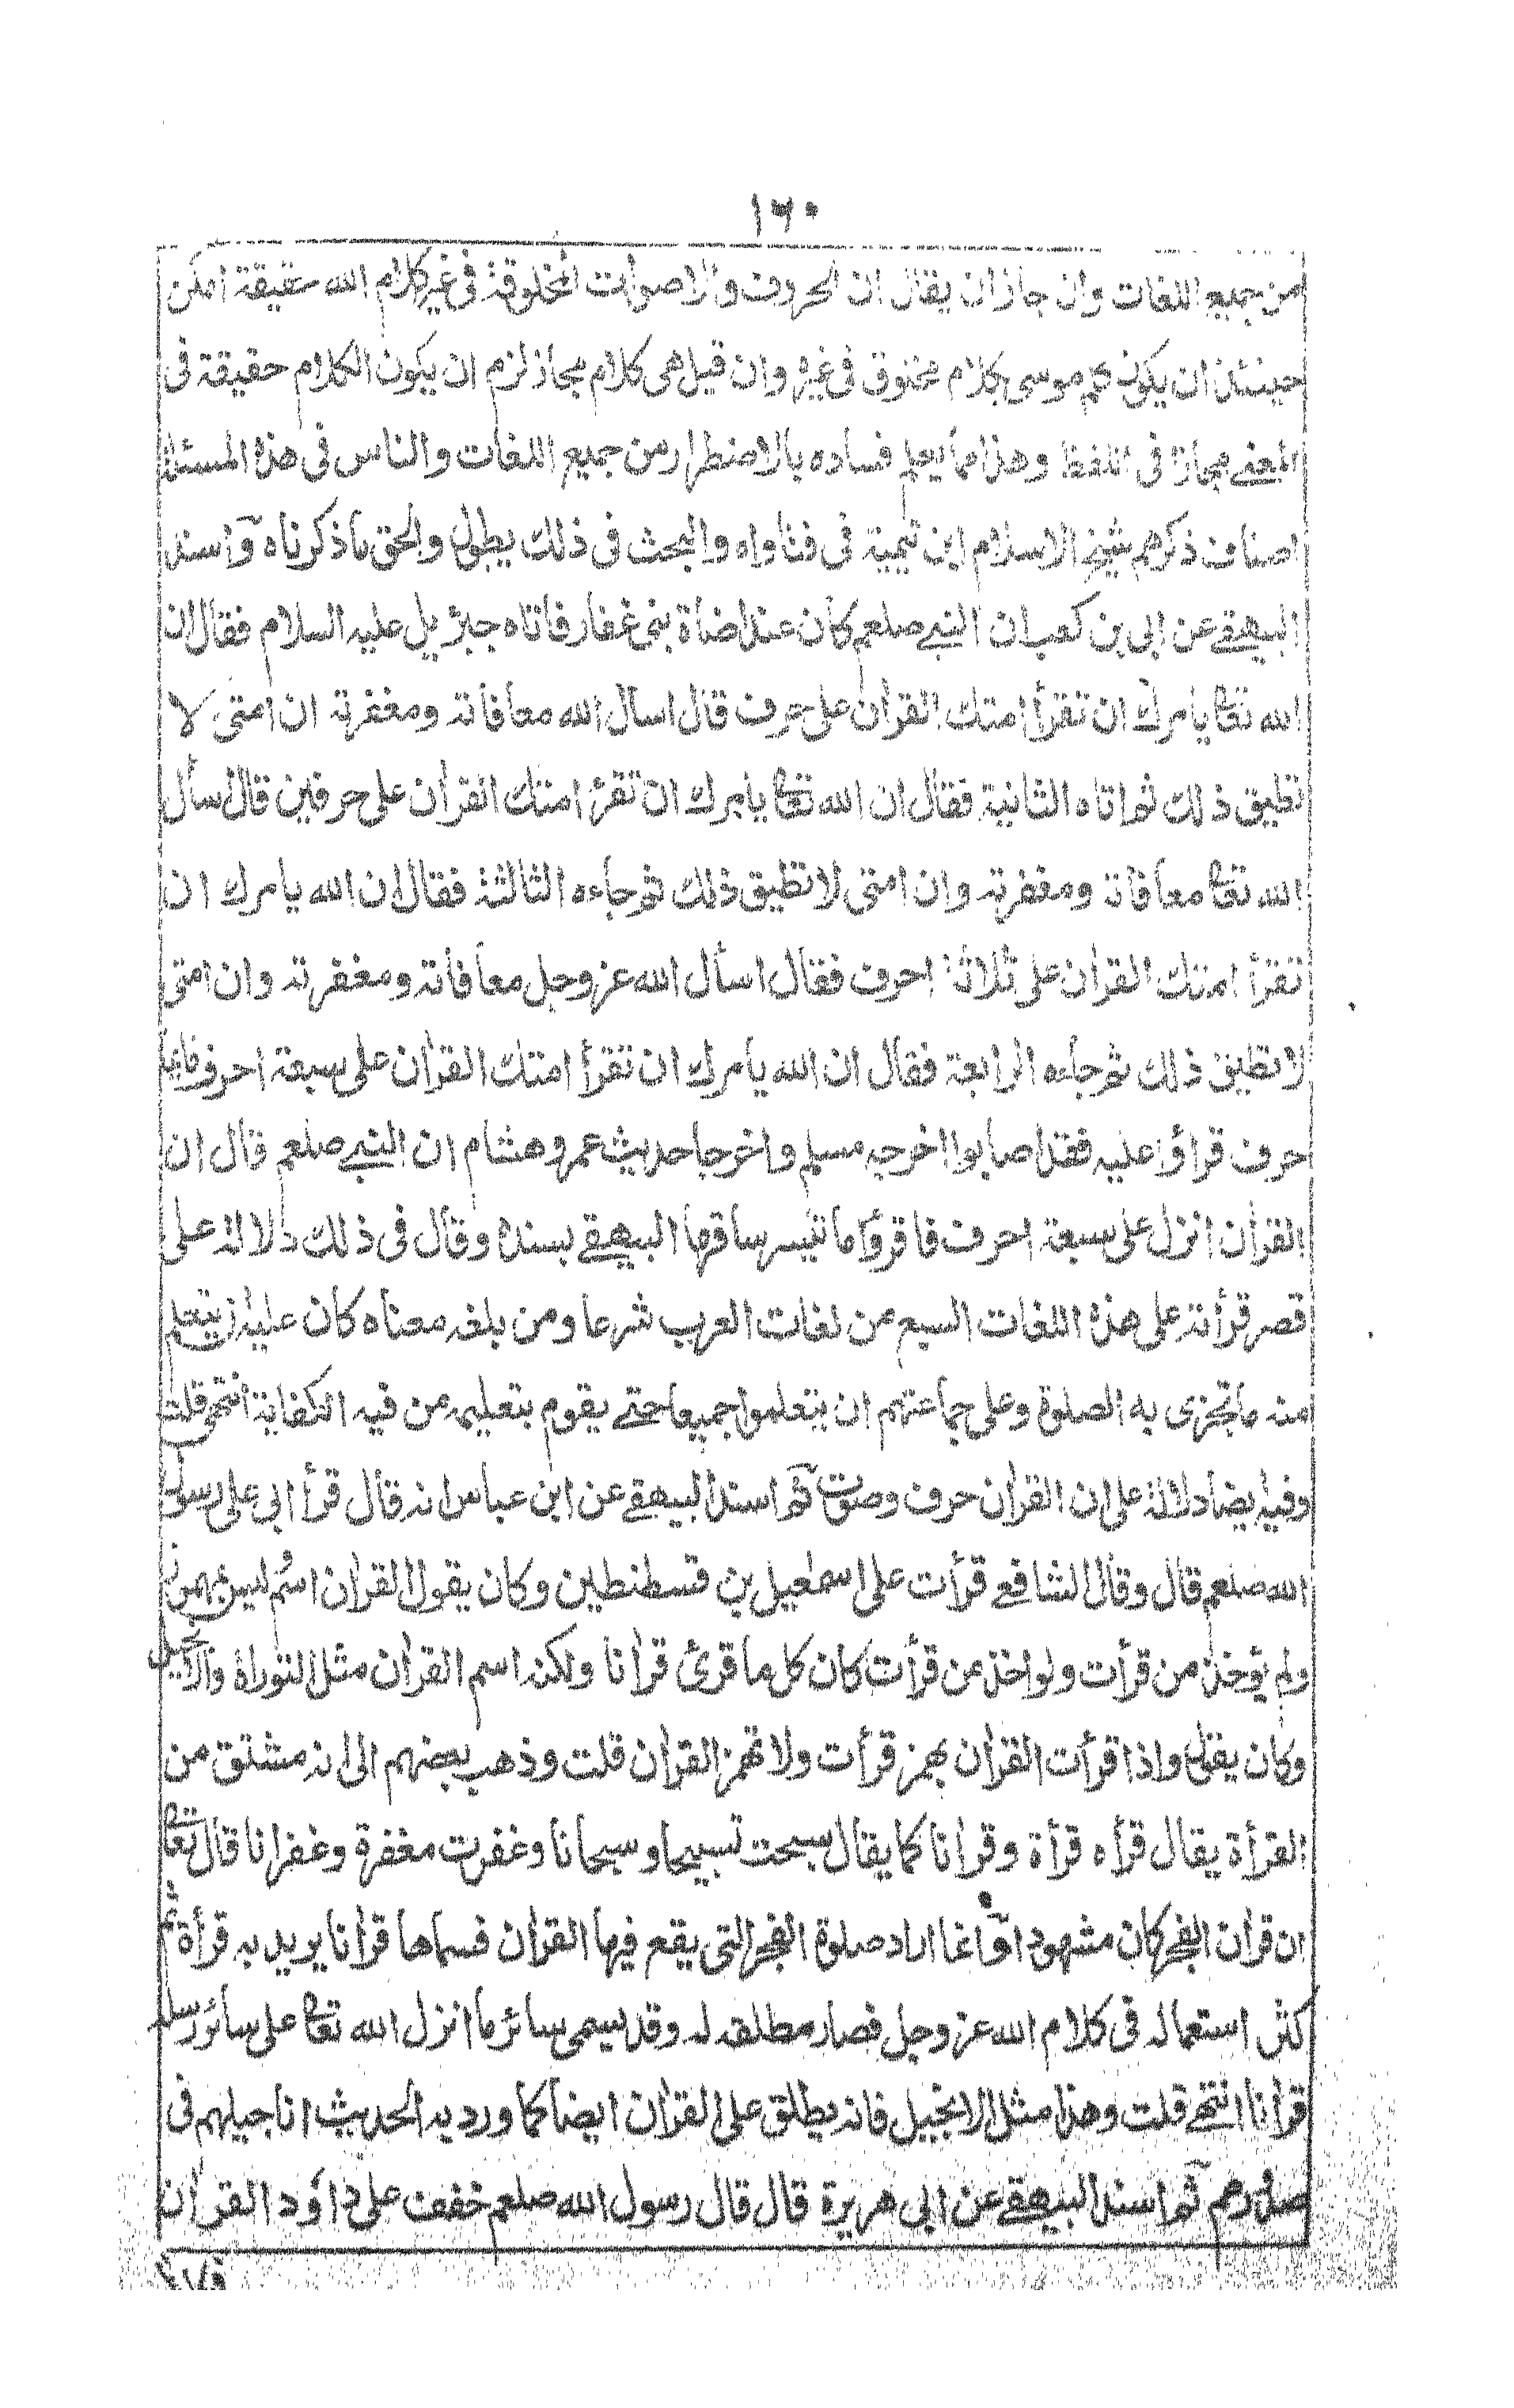 ١٦٠
من جميع اللغات وان جاز ان يقال ان الحروف والاصوات المخلوقة فى غيره كلام الله حقيقة امكن
حينئذ ان يكون كلم موسى بكلام مخلوق فى غيره وان قيل هى كلام مجاز لزم ان يكون الكلام حقيقة فى
المعنے مجازا فى اللفظ وهذا مما يعلم فساده بالاضطرار من جميع اللغات والناس فى هذه المسئلة
اصناف ذكرهم شيخ الاسلام ابن تيمية فى فتاواه والبحث فى ذلك يطول والحق ما ذكرناه وآسند
البيهقے عن ابى بن كعب ان النبے صلعم كان عند اضاة بنى غفار فاتاه جبرئيل عليه السلام فقال ان
الله تعالى يامرك ان تقرأ امتك القرآن على حرف قال اسأل الله معافاته ومغفرته ان امتى لا
تطيق ذلك ثم اتاه الثانية فقال ان الله تعالى يامرك ان تقرأ امتك القرآن على حرفين قال اسأل
الله تعالى معافاته ومغفرته وان امتى لا تطيق ذلك ثم جاءه الثالثة فقال ان الله يامرك ان
تقرأ امتك القرآن على ثلاثة احرف فقال اسأل الله عز وجل معافاته ومغفرته وان امتى
لا تطيق ذلك ثم جاءه الرابعة فقال ان الله يامرك ان تقرأ امتك القرآن على سبعة احرف فايما
حرف قرأوا عليه فقد اصابوا اخرجه مسلم واخرجا حديث عمر وهشام ان النبے صلعم قال ان
القرآن انزل على سبعة احرف فاقرؤا ما تيسر ساقهما البيهقے بسنده وقال فى ذلك دلالة على
قصر قرأته على هذه اللغات السبع من لغات العرب شرعا ومن بلغه معناه كان عليه ان يتعلم
منه ما تجزى به الصلوة وعلى جماعتهم ان يتعلموا جميعا حتے يقوم بتعليمه من فيه الكفاية انتهى قلت
وفيه ايضا دلالة على ان القرآن حرف وصوت ثم اسند البيهقے عن ابن عباس انه قال قرأ ابى على رسول
الله صلعم قال وقال الشافعے قرأت على اسمعيل بن قسطنطين وكان يقول القرآن اسم ليس بمهموز
ولم يؤخذ من قرأت ولو اخذ من قرأت كان كل ما قرئ قرآنا ولكنه اسم القرآن مثل التوراة والانجيل
وكان يقول واذا قرأت القرآن بهمز قرأت ولا تهمز القرآن قلت وذهب بعضهم الى انه مشتق من
القرأة يقال قرأه قرأة وقرآنا كما يقال سبحت تسبيحا وسبحانا وغفرت مغفرة وغفرانا قال تعالى
ان قرآن الفجر كان مشهودا وانما اراد صلوة الفجر التى يقع فيها القرآن فسماها قرآنا يريد به قرأة ثم
كثر استعماله فى كلام الله عز وجل فصار مطلقه له وقد يسمى سائر ما انزل الله تعالى على سائر رسله
قرآنا انتهے قلت وهذا مثل الانجيل فانه يطلق على القرآن ايضا كما ورد به الحديث اناجيلهم فى
صدورهم ثم اسند البيهقے عن ابى هريرة قال قال رسول الله صلعم خففت على داؤد القرآن